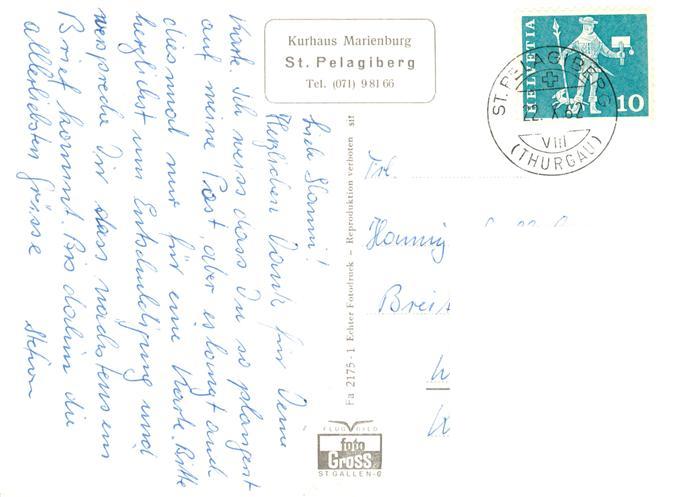 Kurhaus Marienburg
St. Pelagiberg
Tel. (071) 9 81 66
HELVETIA
10
ST. PELAGIBERG
22. X. 62
VIII
(THURGAU)
Herzlichen Dank für Deine
Karte. Ich weiss dass Du so plangest
auf meine Post, aber es langt auch
diesmal nur für eine Karte. Bitte
herzlichst um Entschuldigung und
verspreche Dir dass nächstens ein
Brief kommt. Bis dahin die
allerliebsten Grüsse
Stefan
Fa 2175-1 Echter Fotodruck - Reproduktion verboten stf
Frl.
Breit
FLUGBILD
foto
Gross
ST GALLEN-O